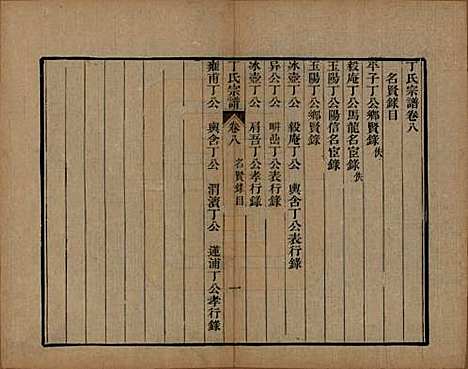 丁氏宗譜卷八
名賢錄目
平子丁公鄉賢錄 佚
毅庵丁公馬龍名宦錄 佚
玉陽丁公陽信名宦錄
玉陽丁公鄉賢錄
冰壺丁公 毅庵丁公 輿含丁公表行錄
异公丁公 畊嵒丁公表行錄
冰壺丁公 肩吾丁公孝行錄
丁氏宗譜 卷八 名賢錄目 一
雍甫丁公 輿含丁公 渭濱丁公 蓮浦丁公孝行錄